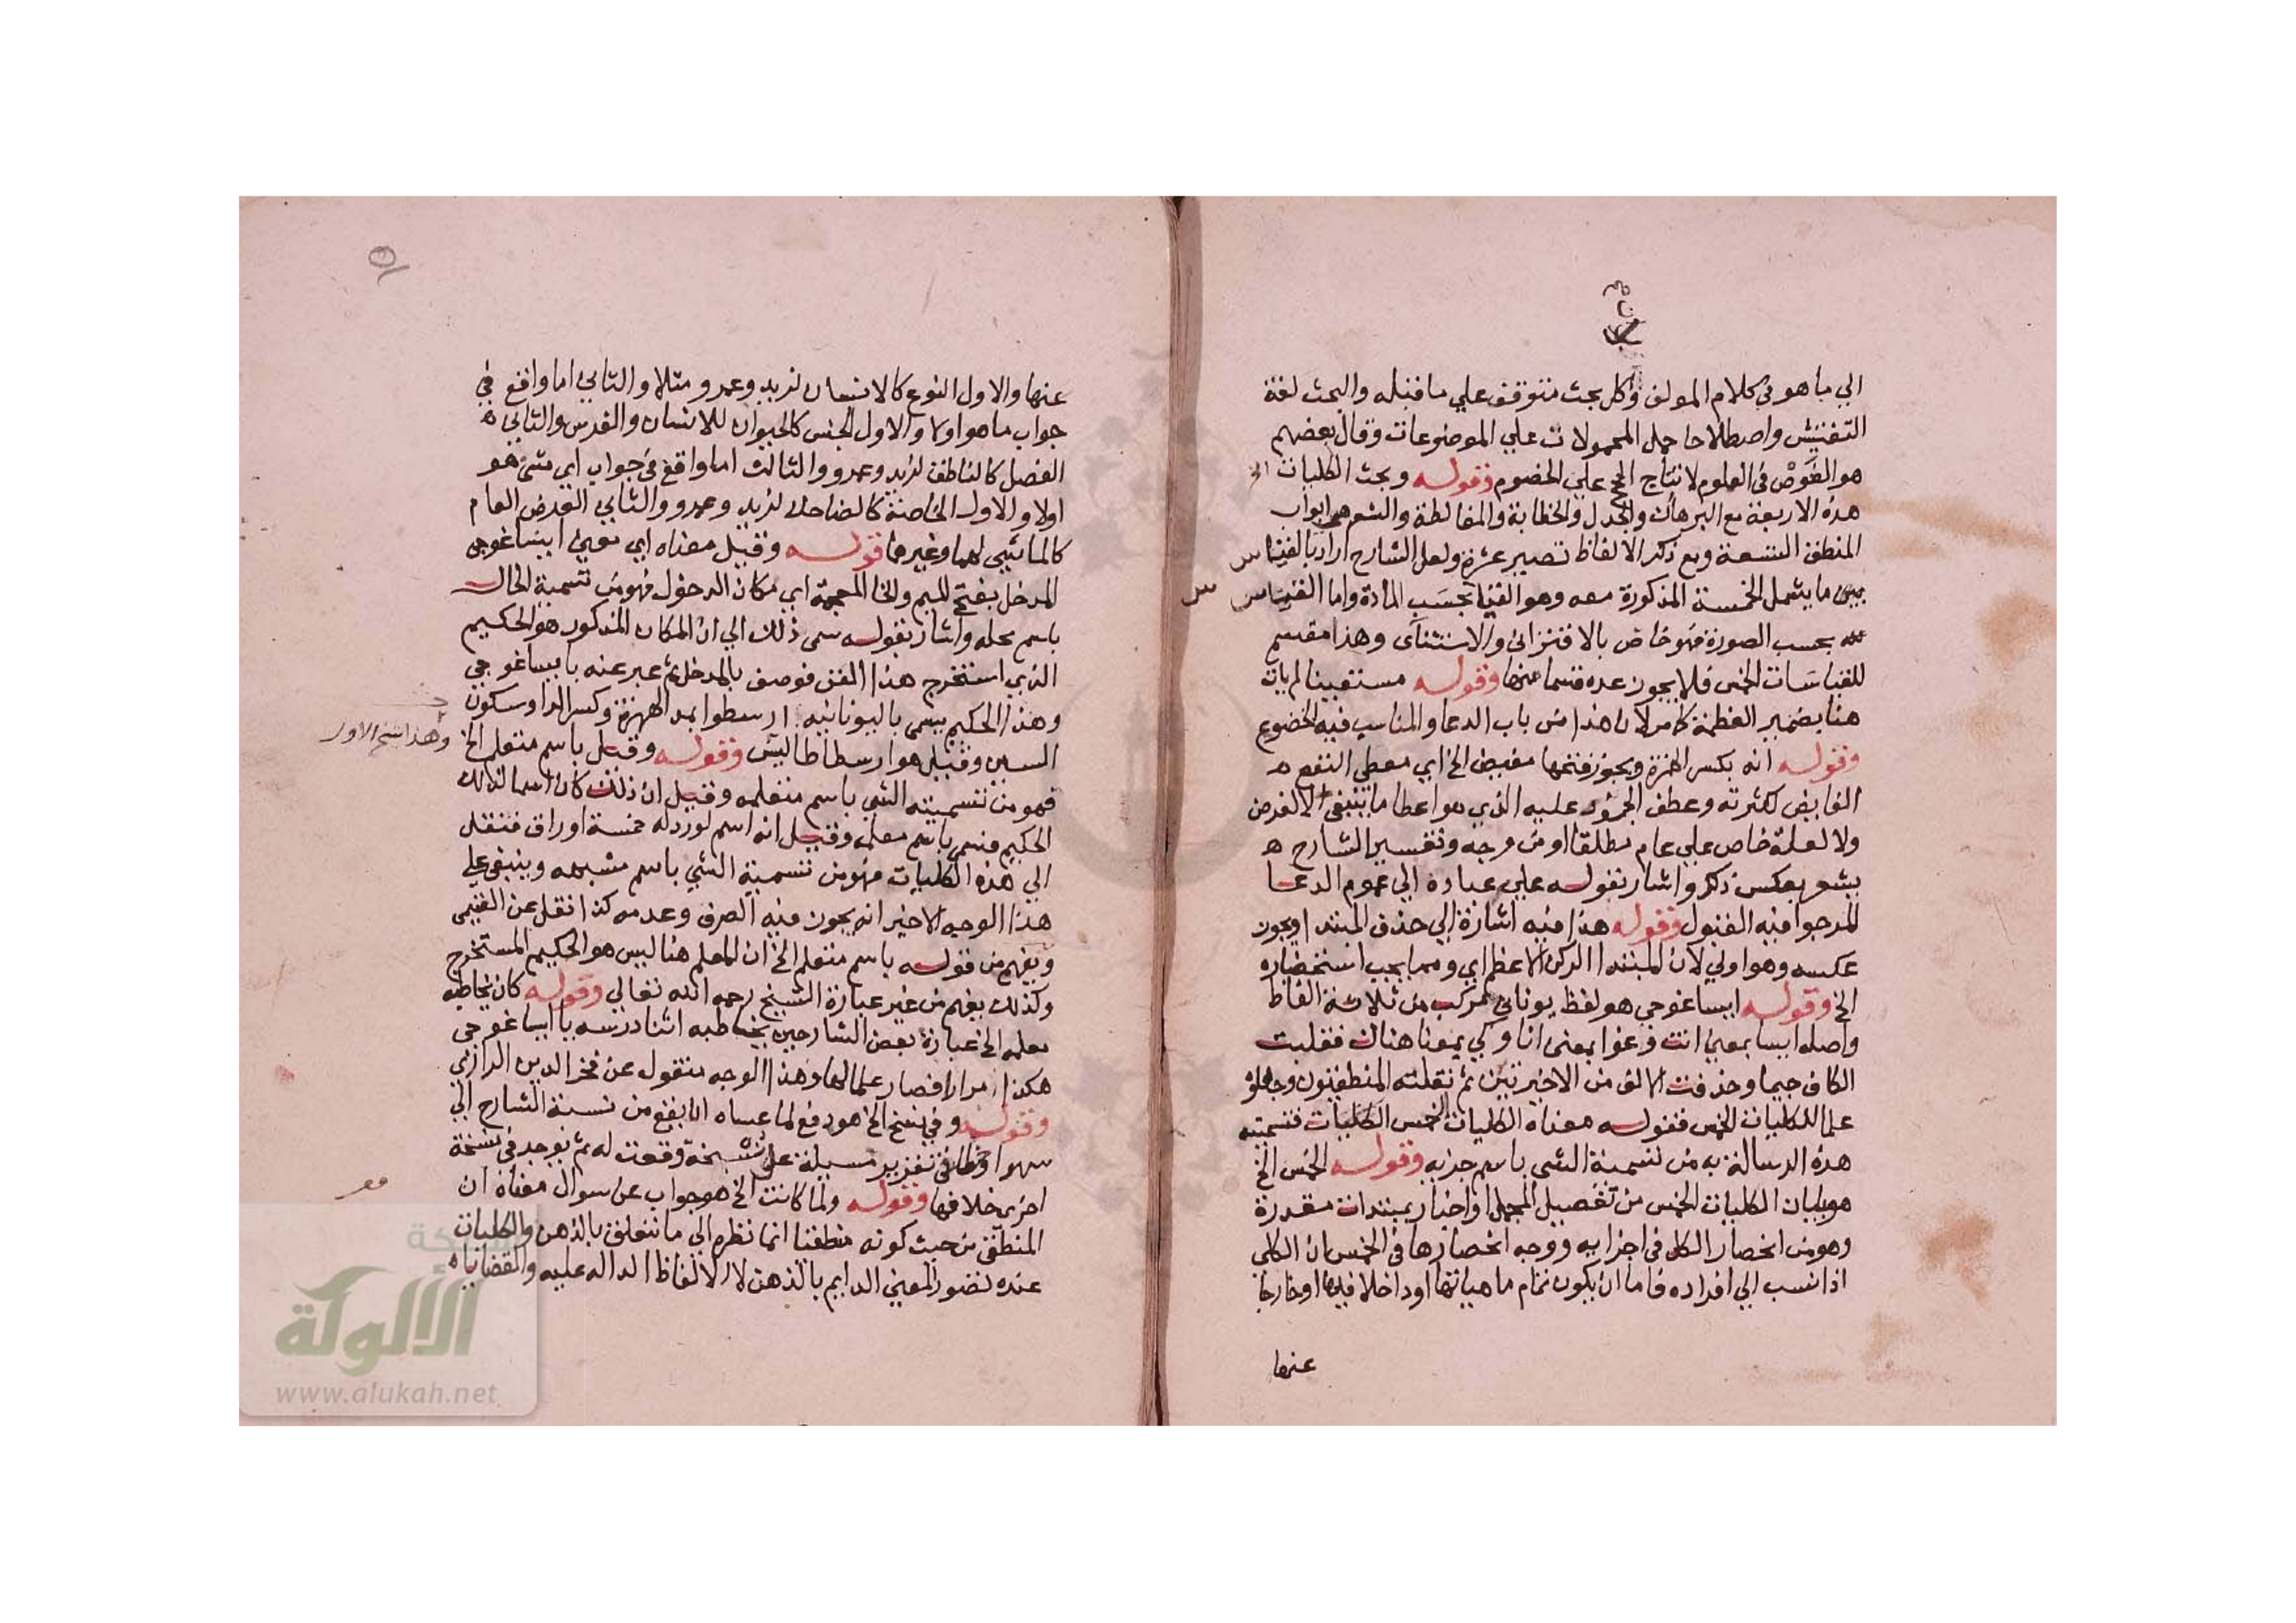 الي ما هو في كلام المولف وكل بحث متوقف علي ما قبله والبحث لغة
التفتيش واصطلاحا حمل المحمولات علي الموضوعات وقال بعضهم
هو الغوص في العلوم لانتاج الحجج علي الخصوم وقوله وبحث الكليات الخ
هذه الاربعة مع البرهان والجدل والخطابة والمغالطة والشعر هي ابواب
المنطق التسعة ومع ذكر الالفاظ تصير عشرة ولعل الشارح اراد بالقياس
ما يشمل الخمسة المذكورة معه وهو القياس بحسب المادة واما القياس
بحسب الصورة فهو خاص بالاقتراني والاستثناى وهذا مقسم
للقياسات الخمس فلا يجوز عده قسما منها وقوله مستعينا لم يات
هنا بضمير العظمة كما مر لان هذا من باب الدعا والمناسب فيه الخضوع
وقوله انه بكسر الهمزة ويجوز فتحها مفيض الخ اي معطي النفع
الفايض لكثرته وعطف الجود عليه الذي هو اعطا ما ينبغي لا لغرض
ولا لعلة خاص علي عام مطلقا او من وجه وتفسير الشارح
يشعر بعكس ذلك واشار بقوله علي عباده الي عموم الدعا
المرجوا فيه القبول وقوله هذا فيه اشارة الي حذف المبتدا ويجوز
عكسه وهو اولي لان المبتدا الركن الاعظم اي ومما يجب استحضاره
الخ وقوله ايساغوجي هو لفظ يوناني مركب من ثلاثة الفاظ
واصله ايسا بمعني انت وغوا بمعني انا وكي بمعنا هناك فقلبت
الكاف جيما وحذفت الالف من الاخيرتين ثم نقلته المنطقيون وجعلوه
علما للكليات الخمس فقوله معناه الكليات الخمس الكليات فتسميته
هذه الرسالة به من تسمية الشي باسم جزيه وقوله الخمس الخ
هو بيان الكليات الخمس من تفصيل المجمل او اخبار بمبتدات مقدرة
وهو من انحصار الكل في اجزايه ووجه انحصارها في الخمس ان الكلي
اذا نسب الي افراده فاما ان يكون تمام ماهياتها او داخلا فيها او خارجا
عنها
عنها والاول النوع كالانسان لزيد وعمرو مثلا والثاني اما واقع في
جواب ما هو اولا والاول الجنس كالحيوان للانسان والفرس والثاني
الفصل كالناطق لزيد وعمرو والثالث اما واقع في جواب اي شئ هو
اولا والاول الخاصة كالضاحك لزيد وعمرو والثاني العرض العام
كالماشي لهما وغيرهما قوله وقيل معناه اي معني ايساغوجي
المدخل بفتح الميم والخا المعجمة اي مكان الدخول فهو من تسمية الحال
باسم محله واشار بقوله سمى ذلك الي ان المكان المذكور هو الحكيم
الذي استخرج هذا الفن فوصف بالمدخل ثم عبر عنه بايساغوجي
وهذا الحكيم يسمى باليونانيه ارسطوا بمد الهمزة وكسر الرا وسكون
السين وقيل هو ارسطاطاليس وقوله وقيل باسم متعلم الخ
وهذا اسم الاول
فهو من تسميته الشي باسم متعلمه وقيل ان ذلك كان اسما لذلك
الحكيم فسمى باسم معلمه وقيل انه اسم لوردله خمسة اوراق فنقل
الي هذه الكليات فهو من تسمية الشي باسم مشبهه وينبغي علي
هذا الوجه الاخير انه يجوز فيه الصرف وعدمه كذا نقل عن الغنيمى
ويفهم من قوله باسم متعلم الخ ان المعلم هنا ليس هو الحكيم المستخرج
وكذلك يفهم من غير عبارة الشيخ رحمه الله تعالي وقوله كان يخاطبه
معلمه الخ عبارة بعض الشارحين يخاطبه اثنا درسه يا ايساغوجي
هكذا مرارا فصار علما لها وهذا الوجه منقول عن فخر الدين الرازي
وقوله وفي نسخ الخ هو دفع لما عساه ان يقع من نسبة الشارح الي
سهو او خطا في تقرير مسيلة علي نسخة وقعت له ثم يوجد في نسخة
اخرى خلافها وقوله ولما كانت الخ هو جواب عن سوال معناه ان
المنطقي من حيث كونه منطقيا انما نظره الي ما يتعلق بالذهن والكليات
عنده لتصور المعني الدايم بالذهن لا الالفاظ الداله عليه والقضايا
شبكة
الألوكة
www.alukah.net